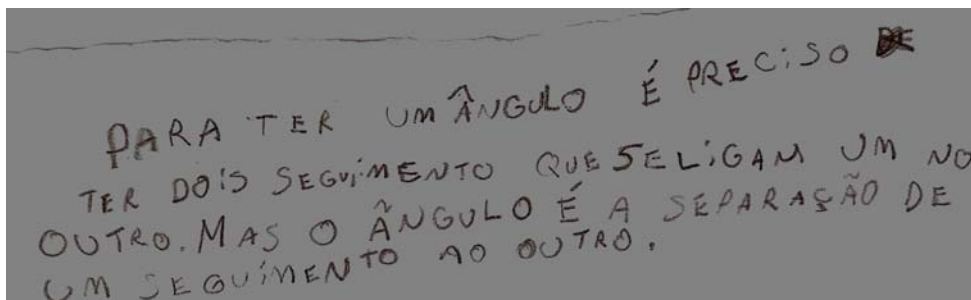 PARA TER UM ÂNGULO É PRECISO
TER DOIS SEGUIMENTO QUE SE LIGAM UM NO
OUTRO. MAS O ÂNGULO É A SEPARAÇÃO DE
UM SEGUIMENTO AO OUTRO.